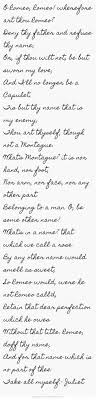 O Romeo, Romeo! wherefore
art thou Romeo?
Deny thy father and refuse
thy name;
Or, if thou wilt not, be but
sworn my love,
And I'll no longer be a
Capulet.
'Tis but thy name that is
my enemy;
Thou art thyself, though
not a Montague.
What's Montague? it is nor
hand, nor foot,
Nor arm, nor face, nor any
other part
Belonging to a man. O, be
some other name!
What's in a name? that
which we call a rose
By any other name would
smell as sweet;
So Romeo would, were he
not Romeo call'd,
Retain that dear perfection
which he owes
Without that title. Romeo,
doff thy name,
And for that name which is
no part of thee
Take all myself. Juliet